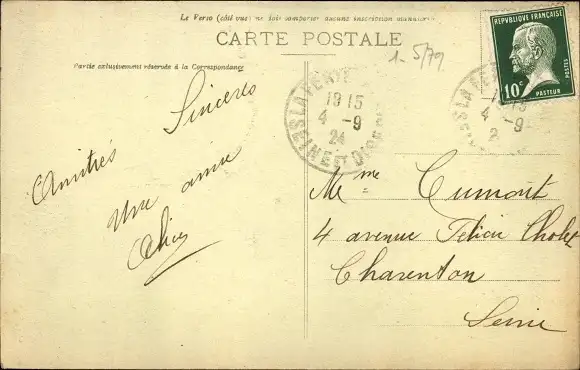 Le Verso (côté vue) ne doit comporter aucune inscription manuscrite
CARTE POSTALE
Partie exclusivement réservée à la Correspondance
1-5/79
REPUBLIQUE FRANÇAISE
POSTES
10c
PASTEUR
LA FERTE
1915
4 -9
24
SEINE ET OISE
4 -9
2
Sincères
Amitiés
Une amie
Alice
Mme Cumont
4 avenue Félicie Cholet
Charenton
Seine